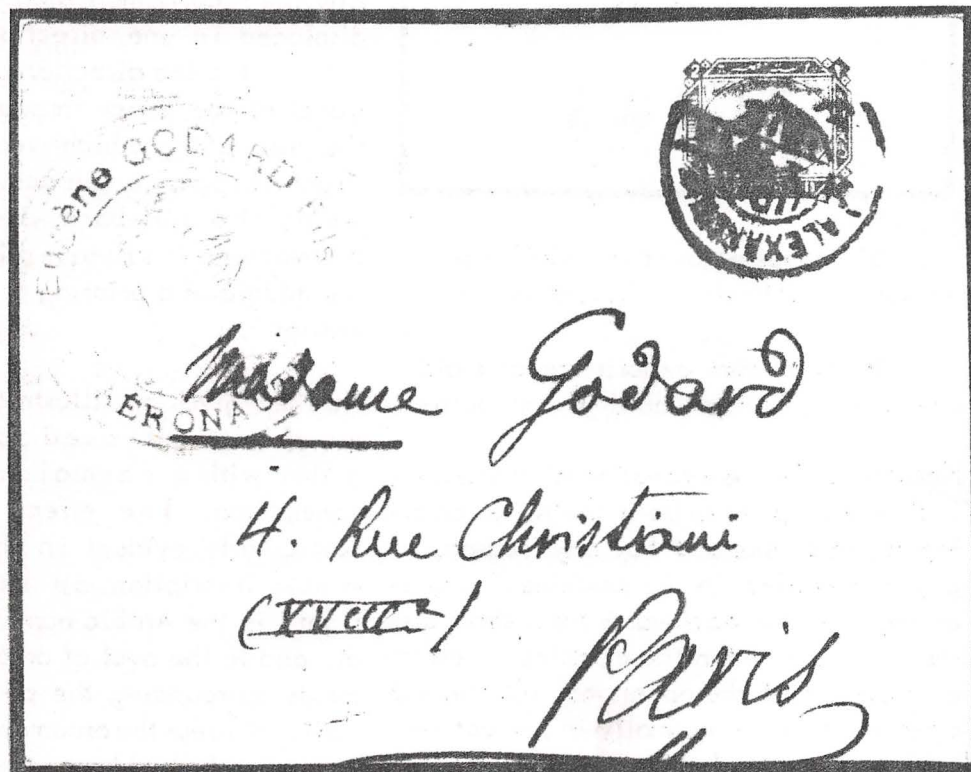 Eugène GODARD
AÉRONAUTE
ALEXAN
Madame Godard
4. Rue Christiani
(XVIIIe)
Paris